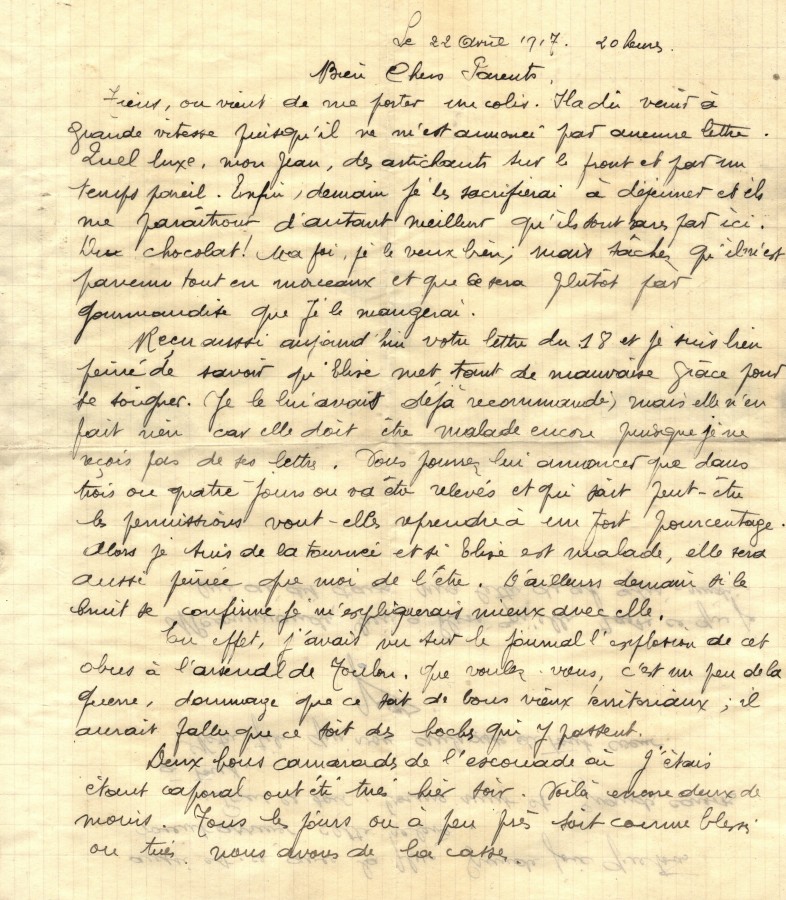 Le 22 Avril 1917. 20 heures.
Bien Chers Parents,
Tiens, on vient de me porter un colis. Il a dû venir à
grande vitesse puisqu'il ne m'est annoncé par aucune lettre.
Quel luxe, mon Jean, des artichauts sur le front et par un
temps pareil. Enfin, demain je les sacrifierai à déjeuner et ils
me paraîtront d'autant meilleur qu'ils sont rares par ici.
Du chocolat! Ma foi, je le veux bien; mais sachez qu'il n'est
parvenu tout en morceaux et que ce sera plutôt par
gourmandise que je le mangerai.
Reçu aussi aujourd'hui votre lettre du 18 et je suis bien
peiné de savoir qu'Elise met tant de mauvaise grâce pour
se soigner. (Je le lui avait déjà recommandé) mais elle n'en
fait rien car elle doit être malade encore puisque je ne
reçois pas de ses lettre. Vous pourrez lui annoncer que dans
trois ou quatre jours on va être relevés et qui sait peut-être
les permissions vont-elles reprendre à un fort pourcentage.
Alors je suis de la tournée et si Elise est malade, elle sera
aussi peinée que moi de l'être. D'ailleurs demain si le
bruit se confirme je m'expliquerais mieux avec elle.
En effet, j'avais vu sur le journal l'explosion de cet
obus à l'arsenal de Toulon. Que voulez-vous, c'est un peu de la
guerre, dommage que ce soit de bons vieux territoriaux; il
aurait fallu que ce soit des boches qui y passent.
Deux bons camarades de l'escouade où j'étais
étant caporal ont été tués hier soir. Voilà encore deux de
moins. Tous les jours ou à peu près soit comme blessés
ou tués nous avons de la casse.